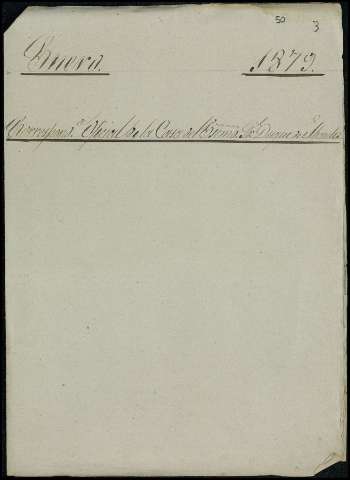 50 3
Enero. 1879.
Correspond.ª Oficial de la Casa del Exmo. Sr. Duque de